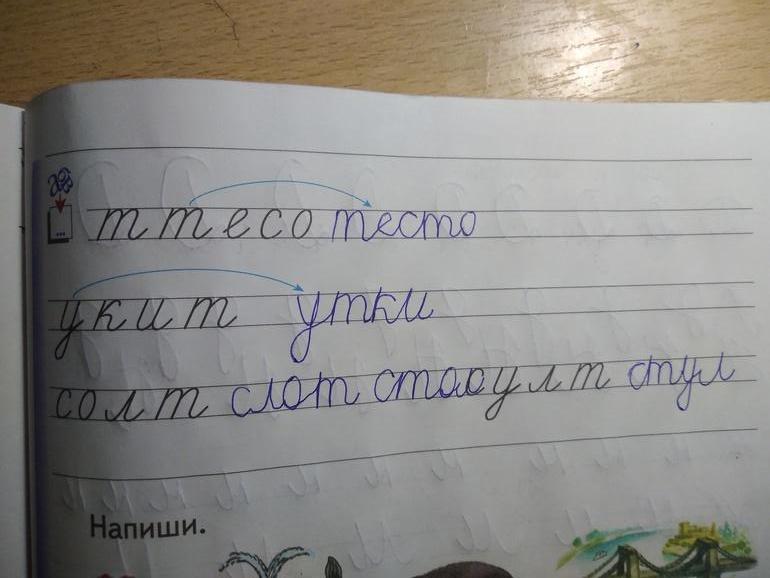 т т е с о тесто
у к и т утки
с о л т слот у л т стул
Напиши.